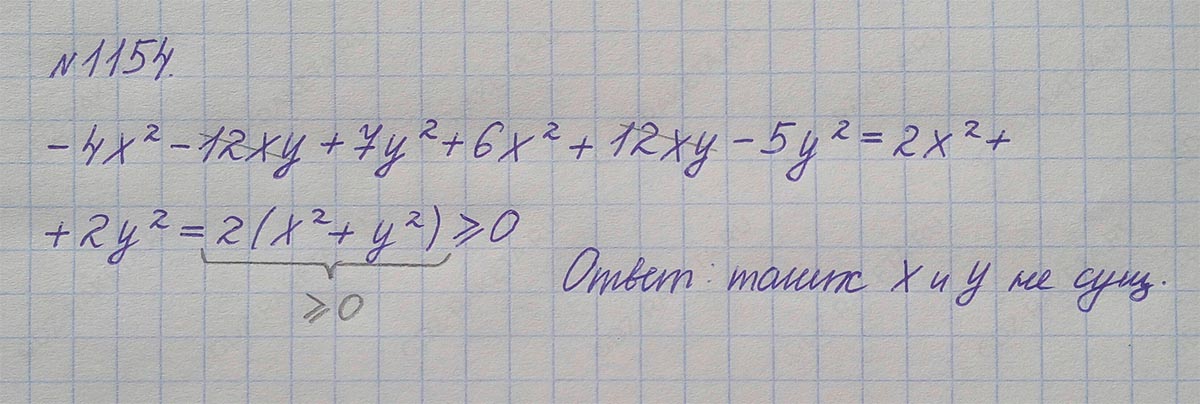 №1154.
-4x² - 12xy + 7y² + 6x² + 12xy - 5y² = 2x² +
+ 2y² = 2(x² + y²) ⩾ 0
⩾ 0
Ответ: таких x и y не сущ.